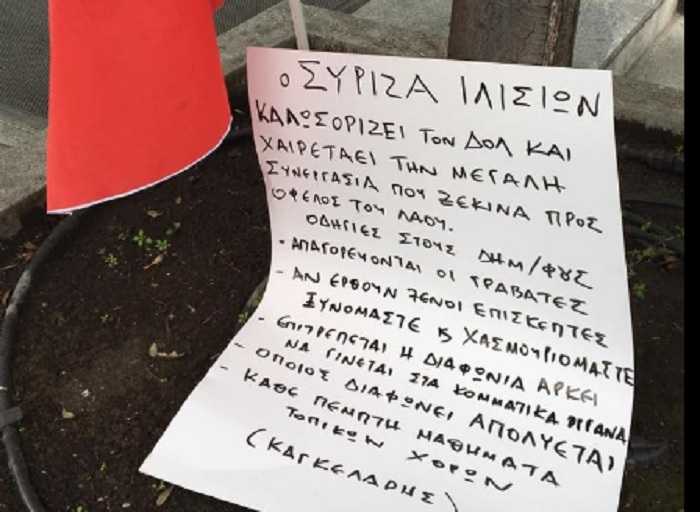 Ο ΣΥΡΙΖΑ ΙΛΙΣΙΩΝ
ΚΑΛΩΣΟΡΙΖΕΙ ΤΟΝ ΔΟΛ ΚΑΙ
ΧΑΙΡΕΤΑΕΙ ΤΗΝ ΜΕΓΑΛΗ
ΣΥΝΕΡΓΑΣΙΑ ΠΟΥ ΞΕΚΙΝΑ ΠΡΟΣ
ΟΦΕΛΟΣ ΤΟΥ ΛΑΟΥ.
ΟΔΗΓΙΕΣ ΣΤΟΥΣ ΔΗΜ/ΦΟΥΣ
- ΑΠΑΓΟΡΕΥΟΝΤΑΙ ΟΙ ΓΡΑΒΑΤΕΣ
- ΑΝ ΕΡΘΟΥΝ ΞΕΝΟΙ ΕΠΙΣΚΕΠΤΕΣ
ΞΥΝΟΜΑΣΤΕ Κ ΧΑΣΜΟΥΡΙΟΜΑΣΤΕ
- ΕΠΙΤΡΕΠΕΤΑΙ Η ΔΙΑΦΩΝΙΑ ΑΡΚΕΙ
ΝΑ ΓΙΝΕΤΑΙ ΣΤΑ ΚΟΜΜΑΤΙΚΑ ΟΡΓΑΝΑ
- ΟΠΟΙΟΣ ΔΙΑΦΩΝΕΙ ΑΠΟΛΥΕΤΑΙ
- ΚΑΘΕ ΠΕΜΠΤΗ ΜΑΘΗΜΑΤΑ
ΤΟΠΙΚΩΝ ΧΟΡΩΝ
(ΚΑΓΚΕΛΑΡΗΣ)